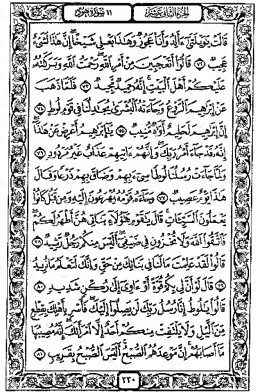 الجزء الثاني عشر سورة هود ١١
قَالَتْ يَٰوَيْلَتَىٰٓ ءَأَلِدُ وَأَنَا۠ عَجُوزٌ وَهَٰذَا بَعْلِى شَيْخًا إِنَّ هَٰذَا لَشَىْءٌ
عَجِيبٌ ٧٢ قَالُوٓا۟ أَتَعْجَبِينَ مِنْ أَمْرِ ٱللَّهِ رَحْمَتُ ٱللَّهِ وَبَرَكَٰتُهُۥ
عَلَيْكُمْ أَهْلَ ٱلْبَيْتِ إِنَّهُۥ حَمِيدٌ مَّجِيدٌ ٧٣ فَلَمَّا ذَهَبَ
عَنْ إِبْرَٰهِيمَ ٱلرَّوْعُ وَجَآءَتْهُ ٱلْبُشْرَىٰ يُجَٰدِلُنَا فِى قَوْمِ لُوطٍ ٧٤
إِنَّ إِبْرَٰهِيمَ لَحَلِيمٌ أَوَّٰهٌ مُّنِيبٌ ٧٥ يَٰٓإِبْرَٰهِيمُ أَعْرِضْ عَنْ هَٰذَآ
إِنَّهُۥ قَدْ جَآءَ أَمْرُ رَبِّكَ وَإِنَّهُمْ ءَاتِيهِمْ عَذَابٌ غَيْرُ مَرْدُودٍ ٧٦
وَلَمَّا جَآءَتْ رُسُلُنَا لُوطًا سِىٓءَ بِهِمْ وَضَاقَ بِهِمْ ذَرْعًا وَقَالَ
هَٰذَا يَوْمٌ عَصِيبٌ ٧٧ وَجَآءَهُۥ قَوْمُهُۥ يُهْرَعُونَ إِلَيْهِ وَمِن قَبْلُ كَانُوا۟
يَعْمَلُونَ ٱلسَّيِّـَٔاتِ قَالَ يَٰقَوْمِ هَٰٓؤُلَآءِ بَنَاتِى هُنَّ أَطْهَرُ لَكُمْ
فَٱتَّقُوا۟ ٱللَّهَ وَلَا تُخْزُونِ فِى ضَيْفِىٓ أَلَيْسَ مِنكُمْ رَجُلٌ رَّشِيدٌ ٧٨
قَالُوا۟ لَقَدْ عَلِمْتَ مَا لَنَا فِى بَنَاتِكَ مِنْ حَقٍّ وَإِنَّكَ لَتَعْلَمُ مَا نُرِيدُ
٧٩ قَالَ لَوْ أَنَّ لِى بِكُمْ قُوَّةً أَوْ ءَاوِىٓ إِلَىٰ رُكْنٍ شَدِيدٍ ٨٠
قَالُوا۟ يَٰلُوطُ إِنَّا رُسُلُ رَبِّكَ لَن يَصِلُوٓا۟ إِلَيْكَ فَأَسْرِ بِأَهْلِكَ بِقِطْعٍ
مِّنَ ٱلَّيْلِ وَلَا يَلْتَفِتْ مِنكُمْ أَحَدٌ إِلَّا ٱمْرَأَتَكَ إِنَّهُۥ مُصِيبُهَا
مَآ أَصَابَهُمْ إِنَّ مَوْعِدَهُمُ ٱلصُّبْحُ أَلَيْسَ ٱلصُّبْحُ بِقَرِيبٍ ٨١
٢٣٠